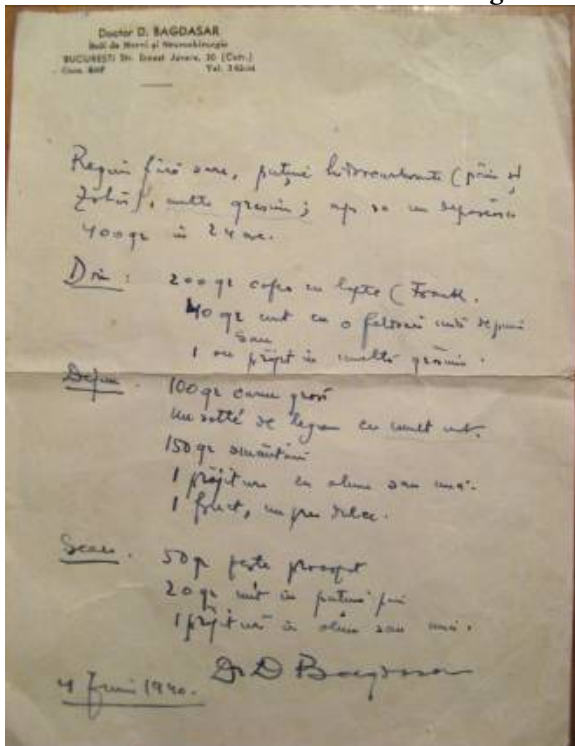 Doctor D. BAGDASAR
Boli de Nervi și Neurochirurgie
BUCUREȘTI Str. Ernest Juvara, 20 (Cotr.)
Cons. Tel.
Regim fără sare, puține hidrocarbonate (pâine și
zahăr), multe grăsimi; apă să nu depășească
400 gr în 24 ore.
200 gr cafea cu lapte (Frank.
40 gr unt cu o felioară mică de pâine
sau
1 ou prăjit în multă grăsime.
Dejun.
100 gr carne grasă
Un sotté de legume cu mult unt.
150 gr smântână
1 prăjitură cu alune sau nuci.
1 fruct, nu prea dulce.
Seara.
50 gr pește proaspăt
20 gr unt cu puțină pâine
1 prăjitură cu alune sau nuci.
Dr D Bagdasar
4 Juni 1940.